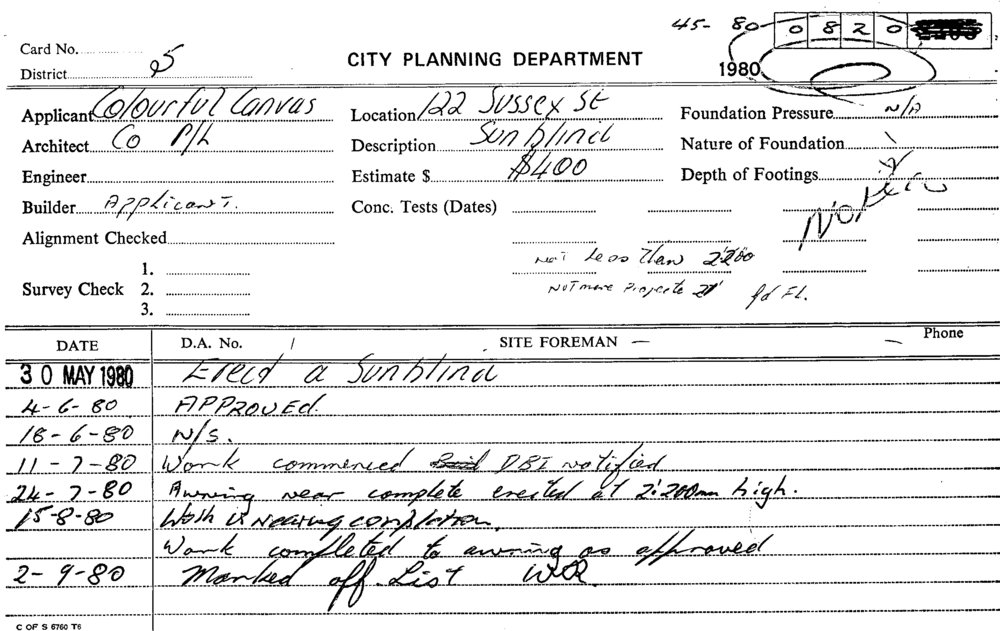 45- 80- 0 8 2 0
Card No. 5
District
CITY PLANNING DEPARTMENT
1980
Applicant Colourful Canvas
Location 122 Sussex St
Foundation Pressure N/A
Architect Co P/L
Description Sunblind
Nature of Foundation
Engineer
Estimate $ $400
Depth of Footings
Builder Applicant.
Conc. Tests (Dates)
Alignment Checked
Not Less Than 2.200
Survey Check 1.
2.
3.
Not more Projecte
DATE
D.A. No. /
SITE FOREMAN —
Phone
30 MAY 1980 Erect a Sunblind
4-6-80 APPROVED.
18-6-80 N/S.
11-7-80 Work commenced DBI notified
24-7-80 Awning near complete erected at 2.200mm high.
15-8-80 Work is nearing completion.
Work completed to awning as approved
2-9-80 Marked off List WR.
C OF S 6760 T6